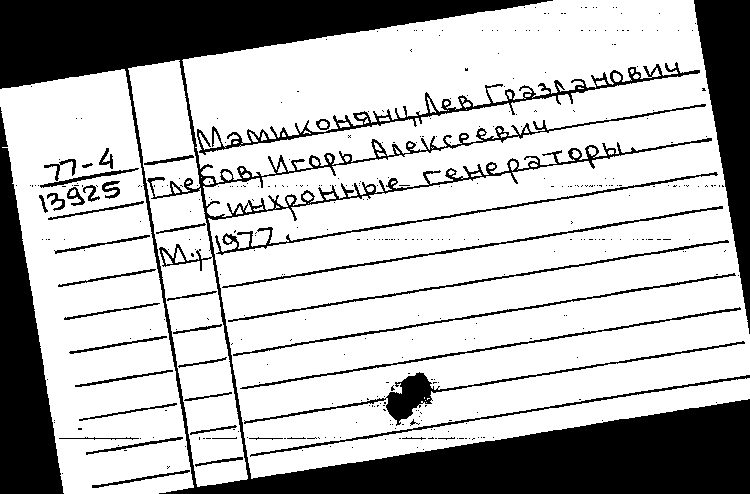 Мамиконянц, Лев Гразданович
77-4
13925
Глебов, Игорь Алексеевич
Синхронные генераторы.
М., 1977.